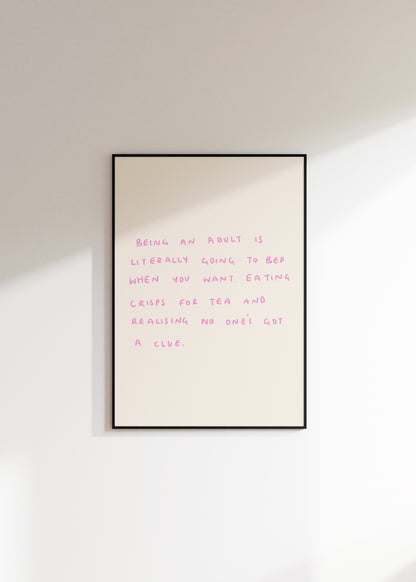 BEING AN ADULT IS
LITERALLY GOING TO BED
WHEN YOU WANT EATING
CRISPS FOR TEA AND
REALISING NO ONE'S GOT
A CLUE.